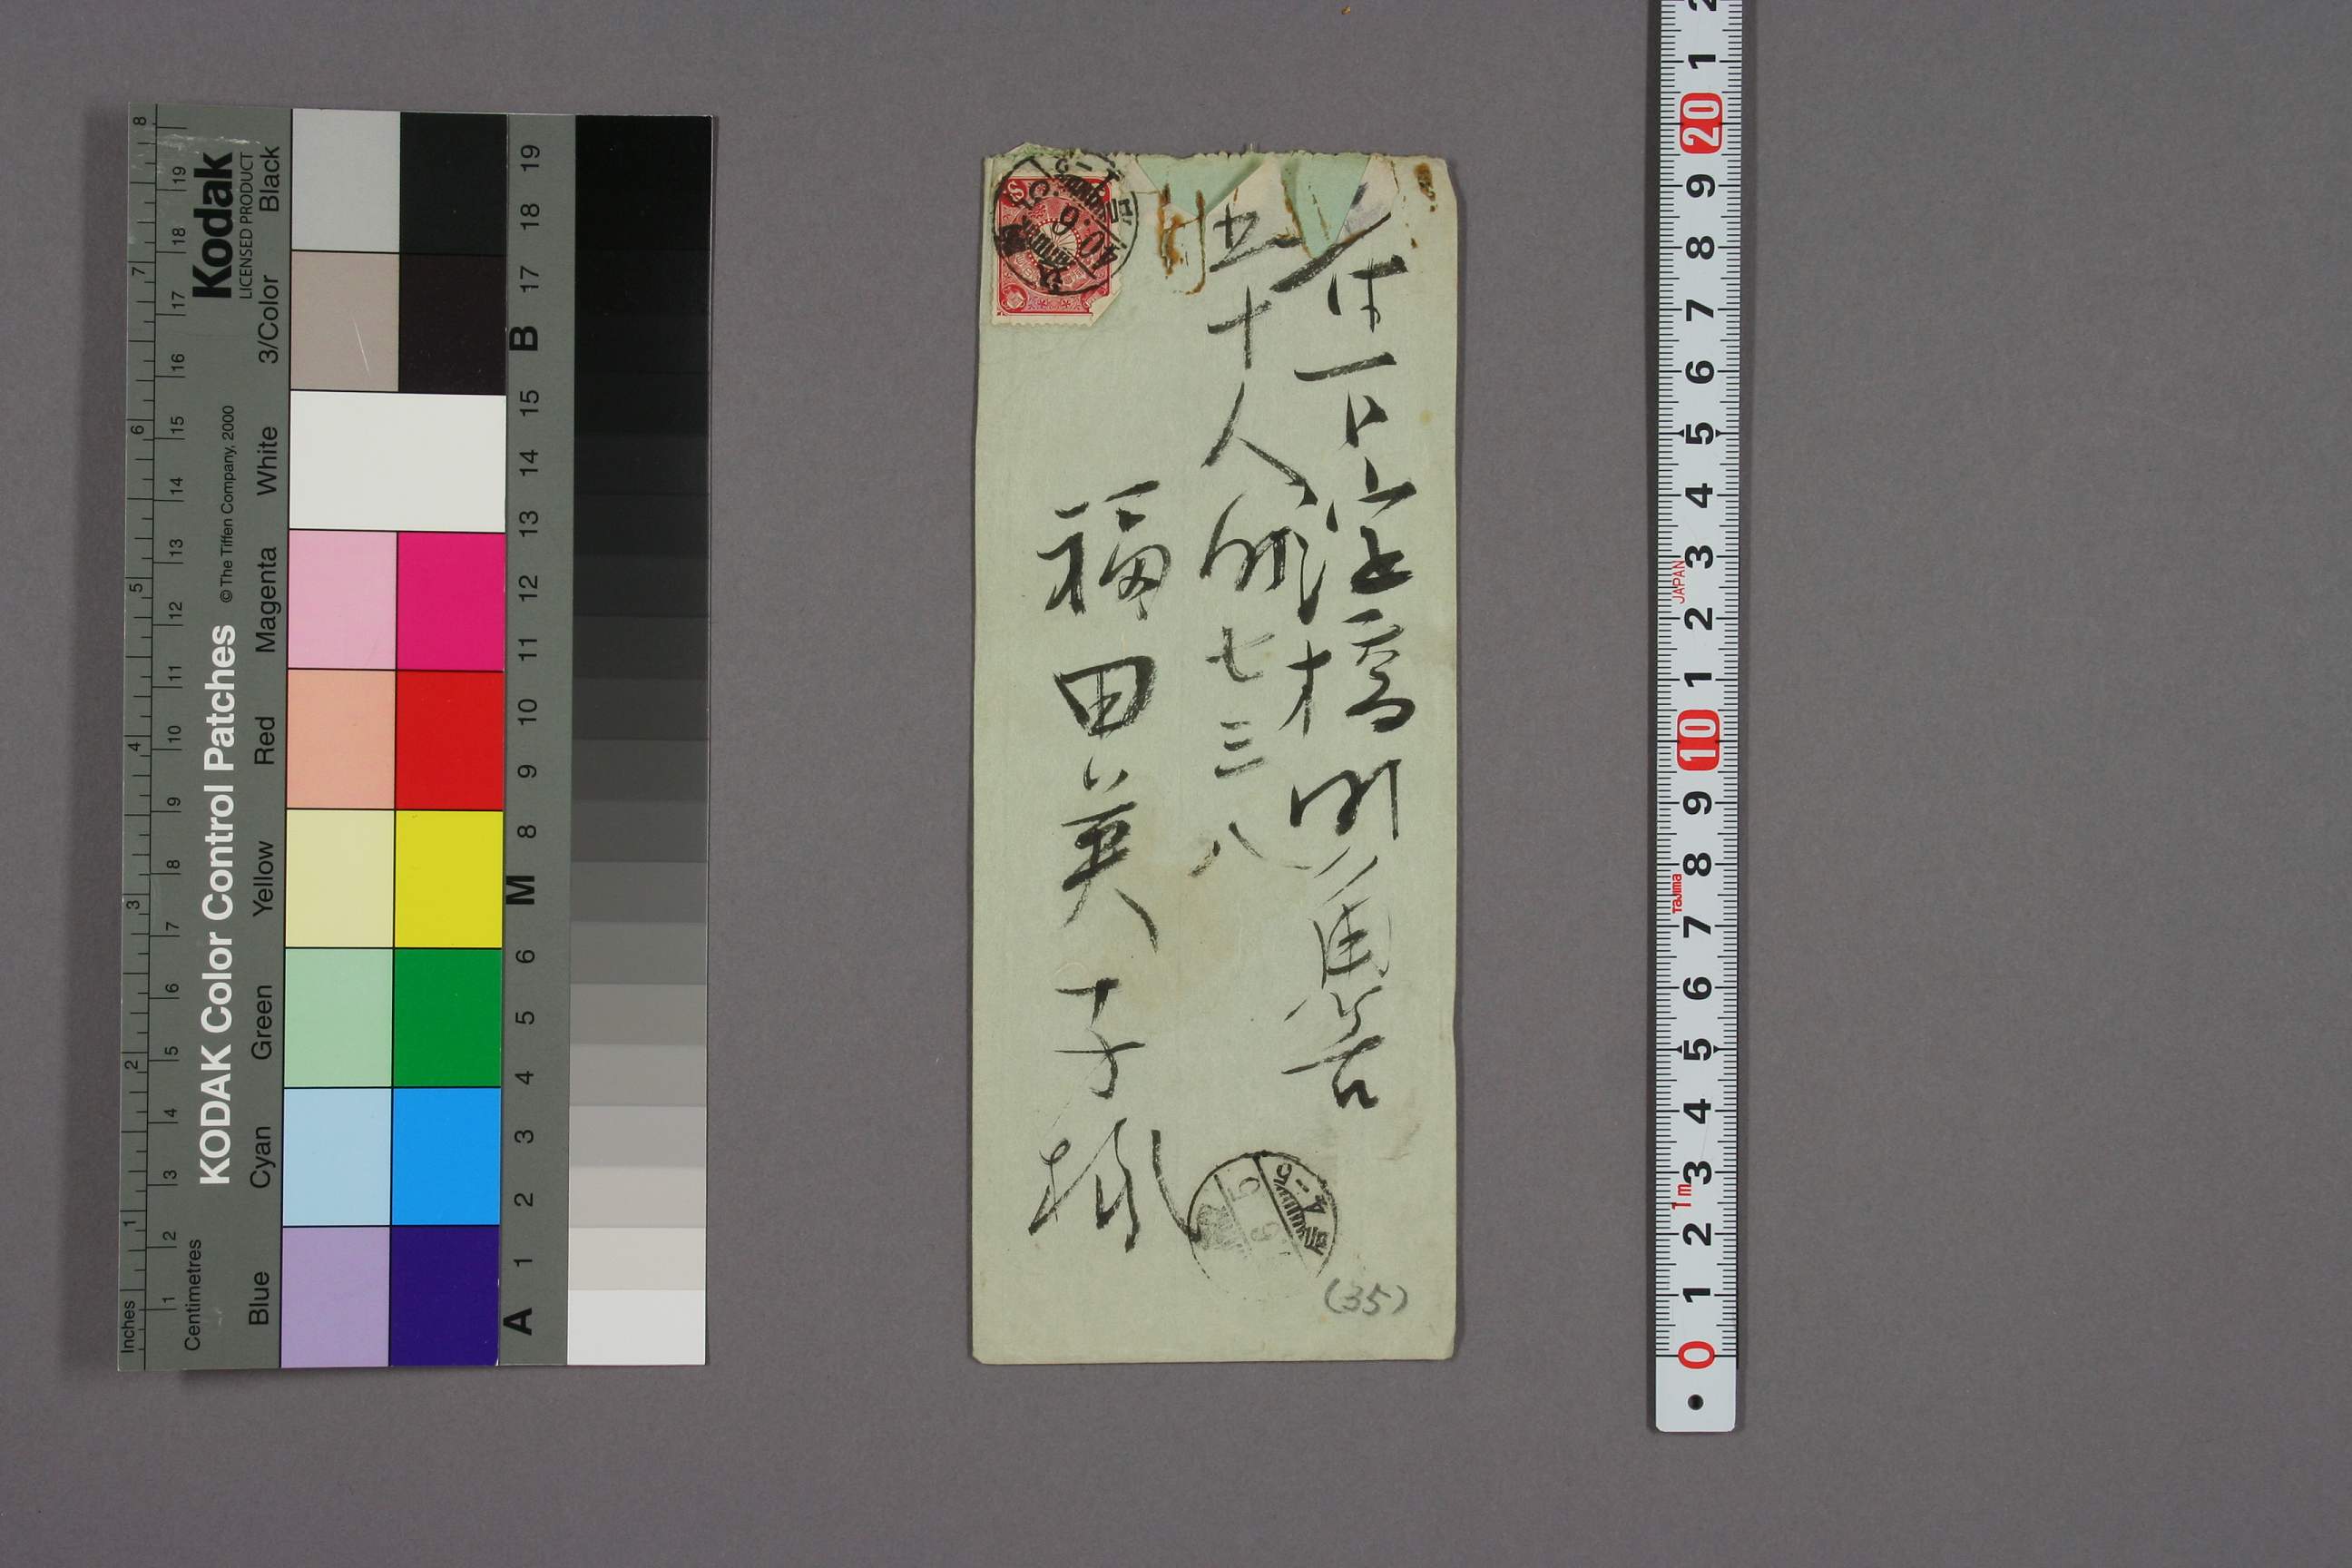 府下淀橋町角筈
五十人町七三八
福田英子様
(35)
40.6.5
Kodak
LICENSED PRODUCT
KODAK Color Control Patches
© The Tiffen Company, 2000
Blue Cyan Green Yellow Red Magenta White 3/Color Black
Inches 1 2 3 4 5 6 7 8
Centimetres 1 2 3 4 5 6 7 8 9 10 11 12 13 14 15 16 17 18 19
A 1 2 3 4 5 6 M 8 9 10 11 12 13 14 15 B 17 18 19
0 1 2 3 4 5 6 7 8 9 10 1 2 3 4 5 6 7 8 9 20 1 2
1m
Tajima
JAPAN